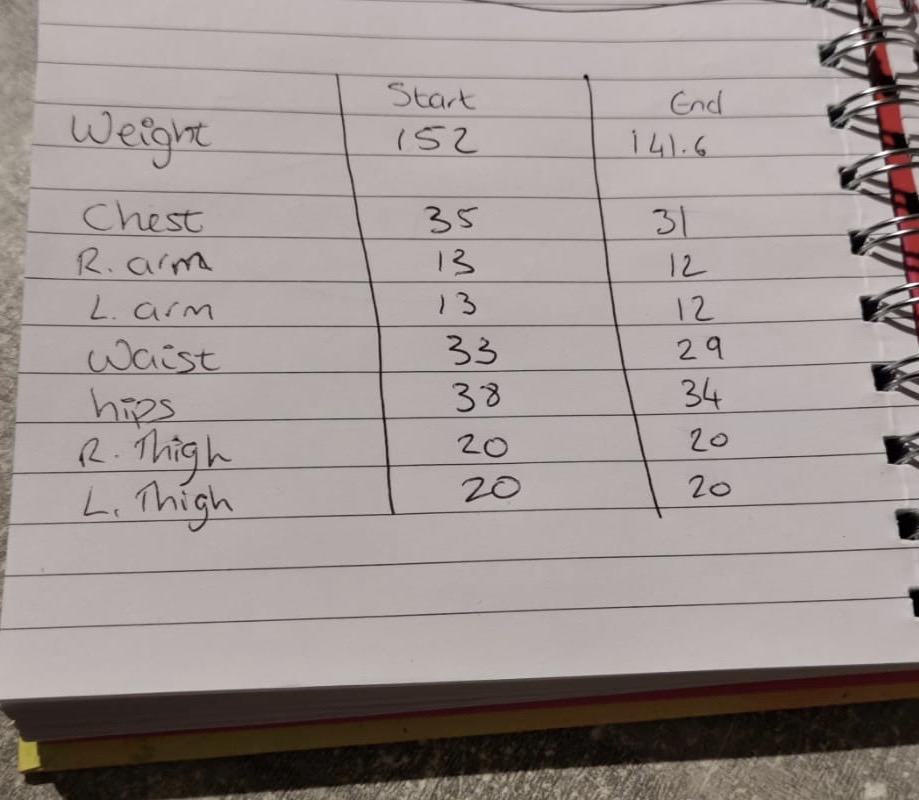 Start End
Weight 152 141.6
Chest 35 31
R. arm 13 12
L. arm 13 12
Waist 33 29
hips 38 34
R. Thigh 20 20
L. Thigh 20 20